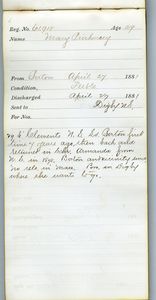 Reg. No. Age 29
Name Mary
From Boston April 27 1881
Condition, Feeble
Discharged April 27 1881
Sent to Digby N.S.
For Nos.
29 St Clements N.S. Boston first
time 7 years ago then back and
returned in Schr. Amanda from
N.S. in 1879. Boston and vicinity since
no rels in Mass. Bro. in Digby
where she wants to go.